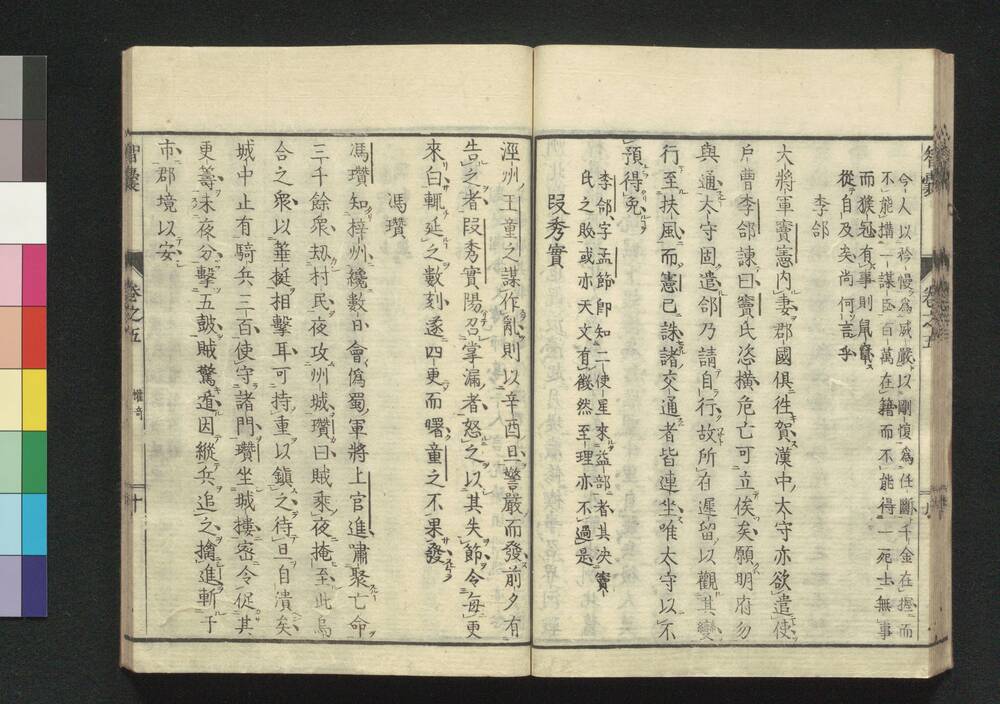 今人以矜慢爲威嚴以剛愎爲任斷千金在握而
不能搆一謀臣百萬在籍而不能得一死士無事
而猴冠有事則鼠竄
從自及矣尚何言乎
李郃
大將軍竇憲内妻郡國俱往賀漢中太守亦欲遣使
戶曹李郃諫曰竇氏恣橫危亡可立俟矣願明府勿
與通太守固遣郃乃請自行故所在遲留以觀其變
行至扶風而憲已誅諸交通者皆連坐唯太守以不
預得免
李郃字孟節即知二使星來益部者其决竇
氏之敗或亦天文有徵然至理亦不過是
段秀實
涇州王童之謀作亂則以辛酉旦警嚴而發前夕有
告之者段秀實陽召掌漏者怒之以其失節令每更
來白輒延之數刻遂四更而曙童之不果發
馮瓚
馮瓚知梓州纔數日會僞蜀軍將上官進嘯聚亡命
三千餘衆刼村民夜攻州城瓚曰賊乘夜掩至此烏
合之衆以菙梃相擊耳可持重以鎮之待旦自潰矣
城中止有騎兵三百使守諸門瓚坐城樓密令促其
更籌未夜分擊五鼓賊驚遁因縱兵追之擒進斬于
市郡境以安
智囊
卷之五
十